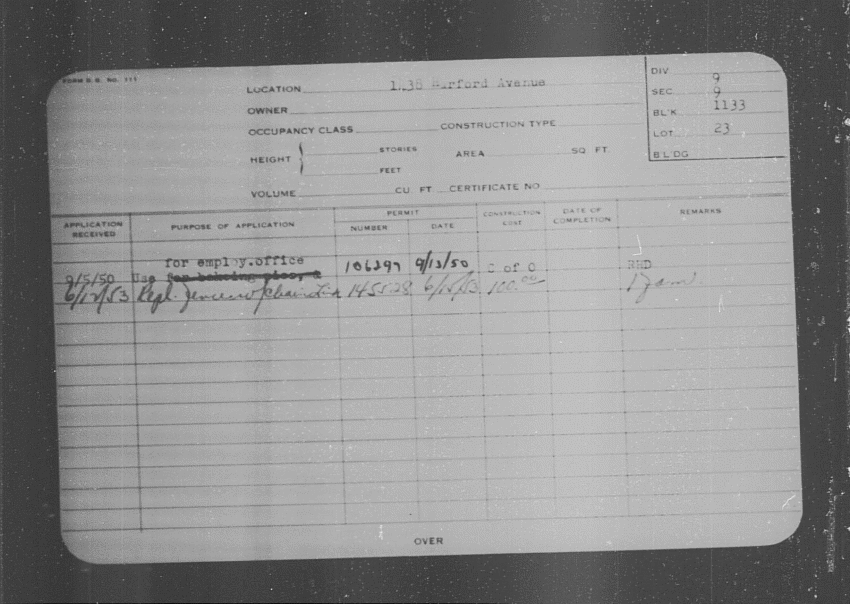 FORM B. B. No. 111
LOCATION Harford Avenue
OWNER
OCCUPANCY CLASS CONSTRUCTION TYPE
HEIGHT STORIES AREA SQ FT.
FEET
VOLUME CU FT CERTIFICATE NO
DIV 9
SEC 9
BL'K 1133
LOT 23
B'LD'G
APPLICATION RECEIVED PURPOSE OF APPLICATION PERMIT NUMBER DATE CONSTRUCTION COST DATE OF COMPLETION REMARKS
for employ.office 106297 9/13/50 C of O RHD
9/5/50 Use for baking pies, &
6/12/53 Repl. fence w/chain link 145528 6/15/53 100.00
OVER